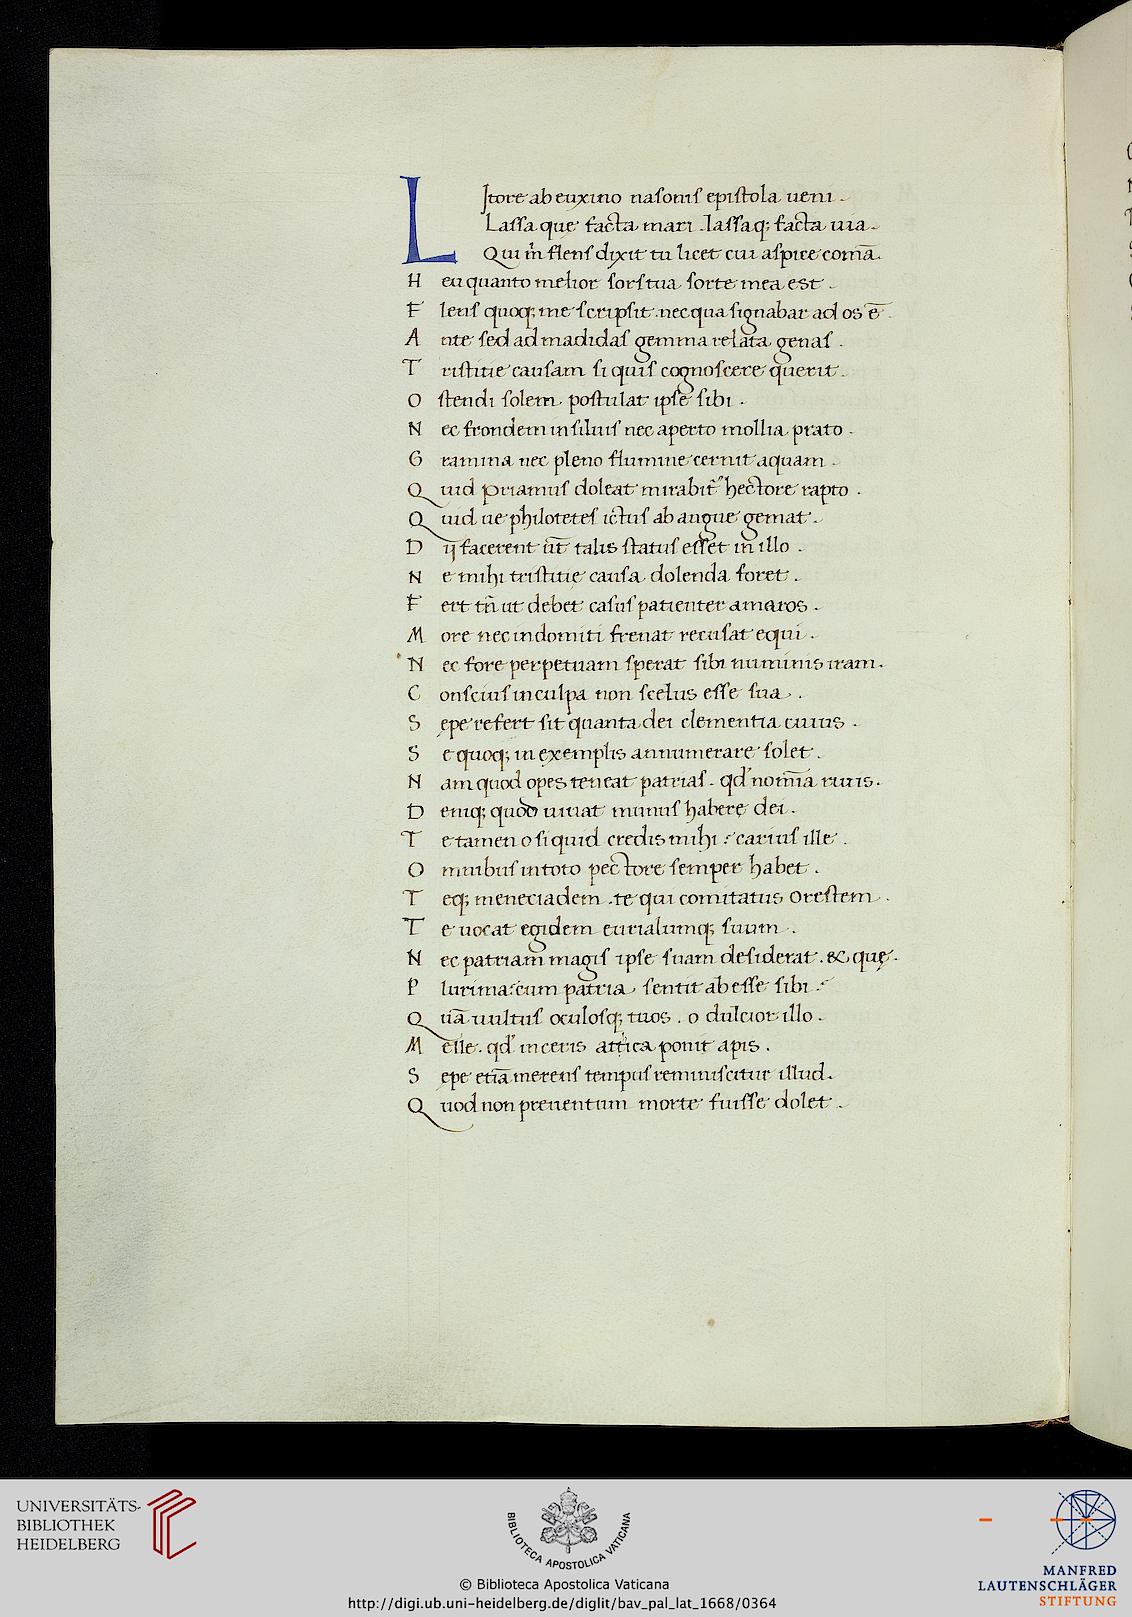 LJtore ab euxino nasonis epistola ueni .
Lassa que facta mari . lassaq; facta uia .
Qui m̃ flens dixit tu licet cui aspice comã .
Heu quanto melior sors tua sorte mea est .
Flens quoq; me scripsit . nec qua signabar ad os ẽ .
Ante sed ad madidas gemma relata genas .
Tristitie causam si quis cognoscere querit .
Ostendi solem . postulat ipse sibi .
Nec frondem in siluis nec aperto mollia prato .
Gramina nec pleno flumine cernit aquam .
Quid priamus doleat mirabit᷑ hectore rapto .
Quid ue philotetes ictus ab angue gemat .
Dij facerent ut̃ talis status esset in illo .
Ne mihi tristitię causa dolenda foret .
Fert tñ ut debet casus patienter amaros .
More nec indomiti frenat recusat equi .
Nec fore perpetuam sperat sibi numinis iram .
Conscius in culpa non scelus esse sua .
Sępe refert sit quanta dei clementia cuius .
Se quoq; in exemplis annumerare solet .
Nam quod opes teneat patrias . qd' nom̃a ciuis .
Deniq; quod uiuat munus habere dei .
Te tamen o si quid credis mihi : carius ille .
Omnibus in toto pectore semper habet .
Teq; meneciadem . te qui comitatus orestem .
Te uocat egidem eurialumq; suum .
Nec patriam magis ipse suam desiderat . & quę .
Plurima : cum patria sentit abesse sibi :
Quã uultus oculosq; tuos . o dulcior illo .
Melle . qd' in ceris attica ponit apis .
Sępe etiã merens tempus reminiscitur illud .
Quod non preuentum morte fuisse dolet .
UNIVERSITÄTS-
BIBLIOTHEK
HEIDELBERG
BIBLIOTECA APOSTOLICA VATICANA
MANFRED
LAUTENSCHLÄGER
STIFTUNG
© Biblioteca Apostolica Vaticana
http://digi.ub.uni-heidelberg.de/diglit/bav_pal_lat_1668/0364